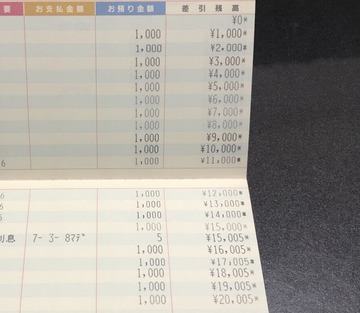 要 お支払金額 お預り金額 差引残高
¥0*
1,000 ¥1,000*
1,000 ¥2,000*
1,000 ¥3,000*
1,000 ¥4,000*
1,000 ¥5,000*
1,000 ¥6,000*
1,000 ¥7,000*
1,000 ¥8,000*
1,000 ¥9,000*
1,000 ¥10,000*
6 1,000 ¥11,000*
6 1,000 ¥12,000*
6 1,000 ¥13,000*
6 1,000 ¥14,000*
1,000 ¥15,000*
利息 7- 3- 8マデ 5 ¥15,005*
1,000 ¥16,005*
1,000 ¥17,005*
1,000 ¥18,005*
1,000 ¥19,005*
1,000 ¥20,005*